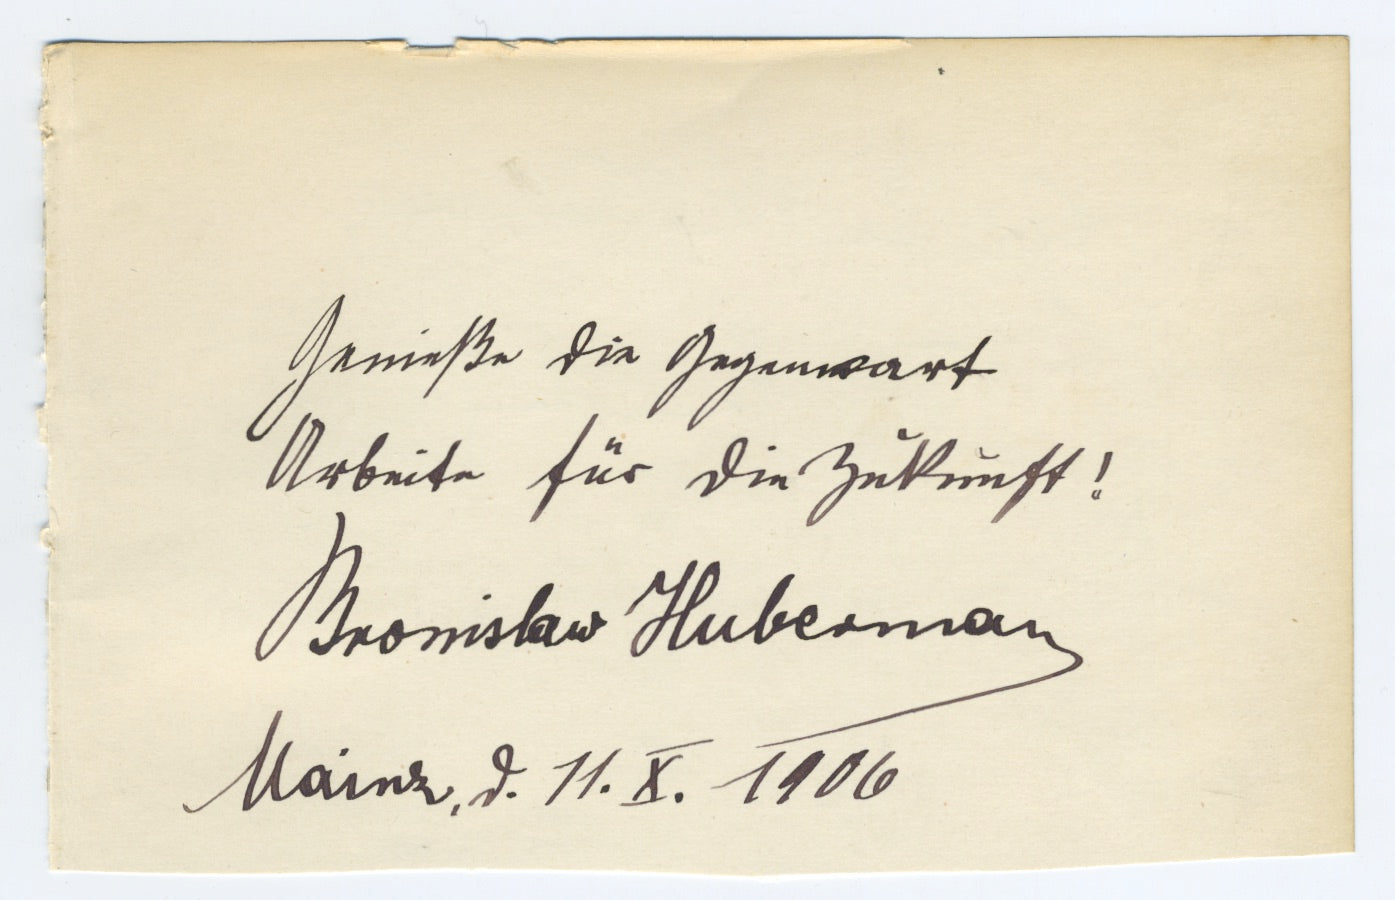 Genieße die Gegenwart
Arbeite für die Zukunft!
Bronislaw Huberman
Mainz, d. 11. X. 1906